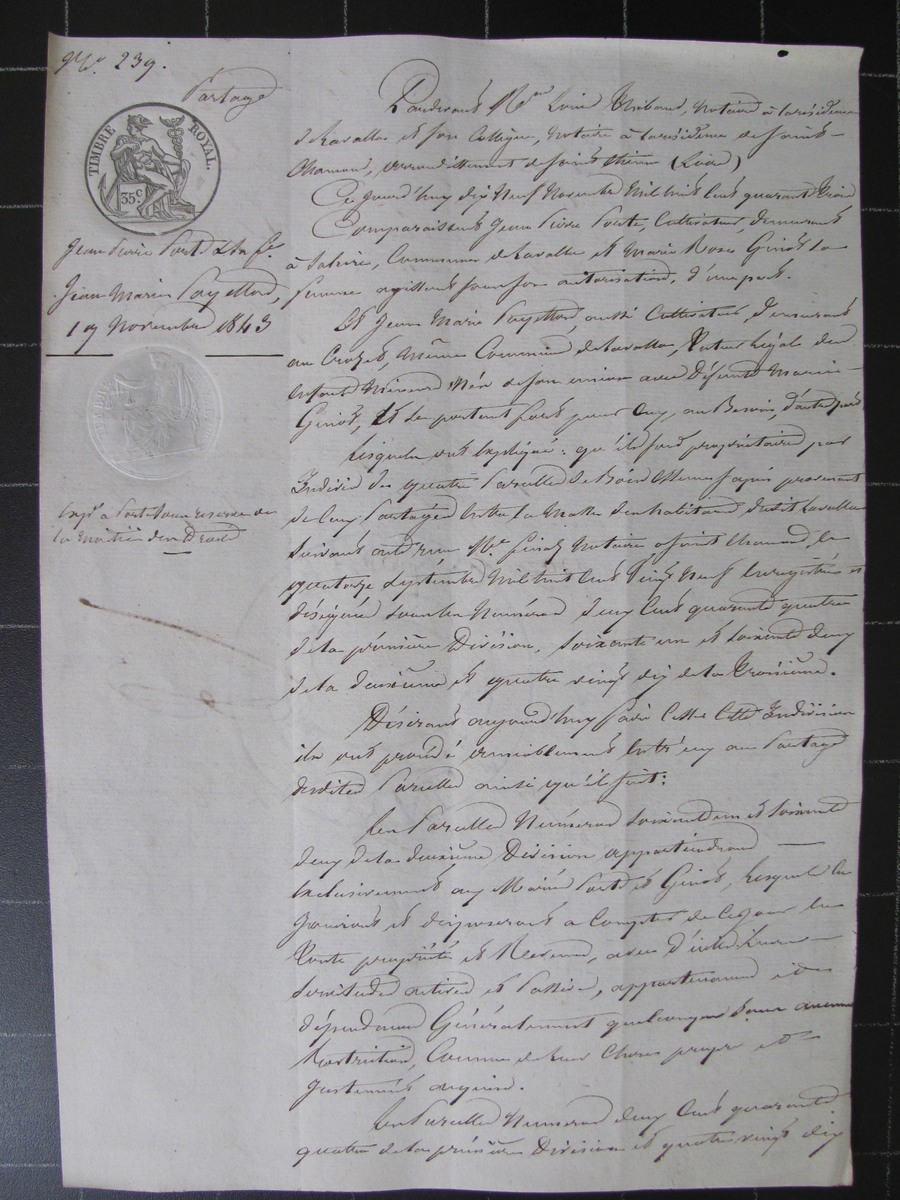 N° 239.
Partage
TIMBRE ROYAL.
35 c
Jean Pierre Porte & sa fe
Jean Marie Payellon,
19 Novembre 1843
la moitié des Droits
Pardevant Me Notaire à la résidence
de Lavalla et son Collègue, Notaire à la résidence de Saint-
Chamond, arrondissement de Saint Etienne (Loire)
Ce jourd'huy dix Neuf Novembre Mil huit Cent quarante trois
Comparaissent Jean Pierre Porte, Cultivateur, demeurant
à Commune de Lavalla et Marie Rose Ginot sa
femme agissant sous son autorisation, d'une part.
Et Jean Marie Payellon, aussi Cultivateur, demeurant
au Crozet, même Commune de Lavalla, Tuteur légal des
Enfants Mineurs Nés de son union avec Défunte Marie
Ginot, et se portant fort pour Eux, au Besoin, d'autre part
Lesquels ont Expliqué : qu'ils sont propriétaires par
Indivis de quatre Parcelles de Bois provenant
de Ceux Partagés Entre la Masse des habitants dudit Lavalla
Suivant acte reçu Me Notaire à Saint Chamond, le
quatorze Septembre Mil huit Cent Vingt Neuf Enregistré et
désignées sous les Numéros deux Cent quarante quatre
de la première Division, soixante un et soixante deux
de la deuxième et quatre vingt dix de la Troisième.
Désirant aujourd'huy faire Cesser Cette Indivision
ils ont procédé amiablement Entr'eux au Partage
desdites Parcelles ainsi qu'il suit :
Les Parcelles Numéros soixante un et soixante
deux de la deuxième Division appartiendront
Exclusivement aux Mariés Porte et Ginot, Lesquels En
Jouiront et disposeront à Compter de Ce Jour En
Toute propriété et Revenu, avec d'icelles Leurs
Servitudes actives et Passives, appartenances et
dépendances Généralement quelconques sans aucune
Restriction, Comme de leur Chose propre et
Justement acquise.
Les Parcelles Numéros deux Cent quarante
quatre de la première Division et quatre vingt dix